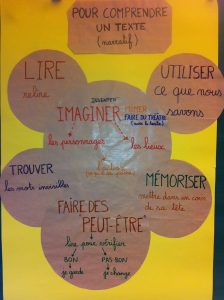 POUR COMPRENDRE
UN TEXTE
(narratif)
LIRE
relire
UTILISER
ce que nous
savons
INVENTER
IMAGINER
MIMER
FAIRE DU THÉÂTRE
(avec le texte)
les personnages
les lieux
TROUVER
les mots invisibles
MÉMORISER
mettre dans un coin
de sa tête
FAIRE DES
"PEUT-ÊTRE"
lire pour vérifier
BON
PAS BON
je garde
je change